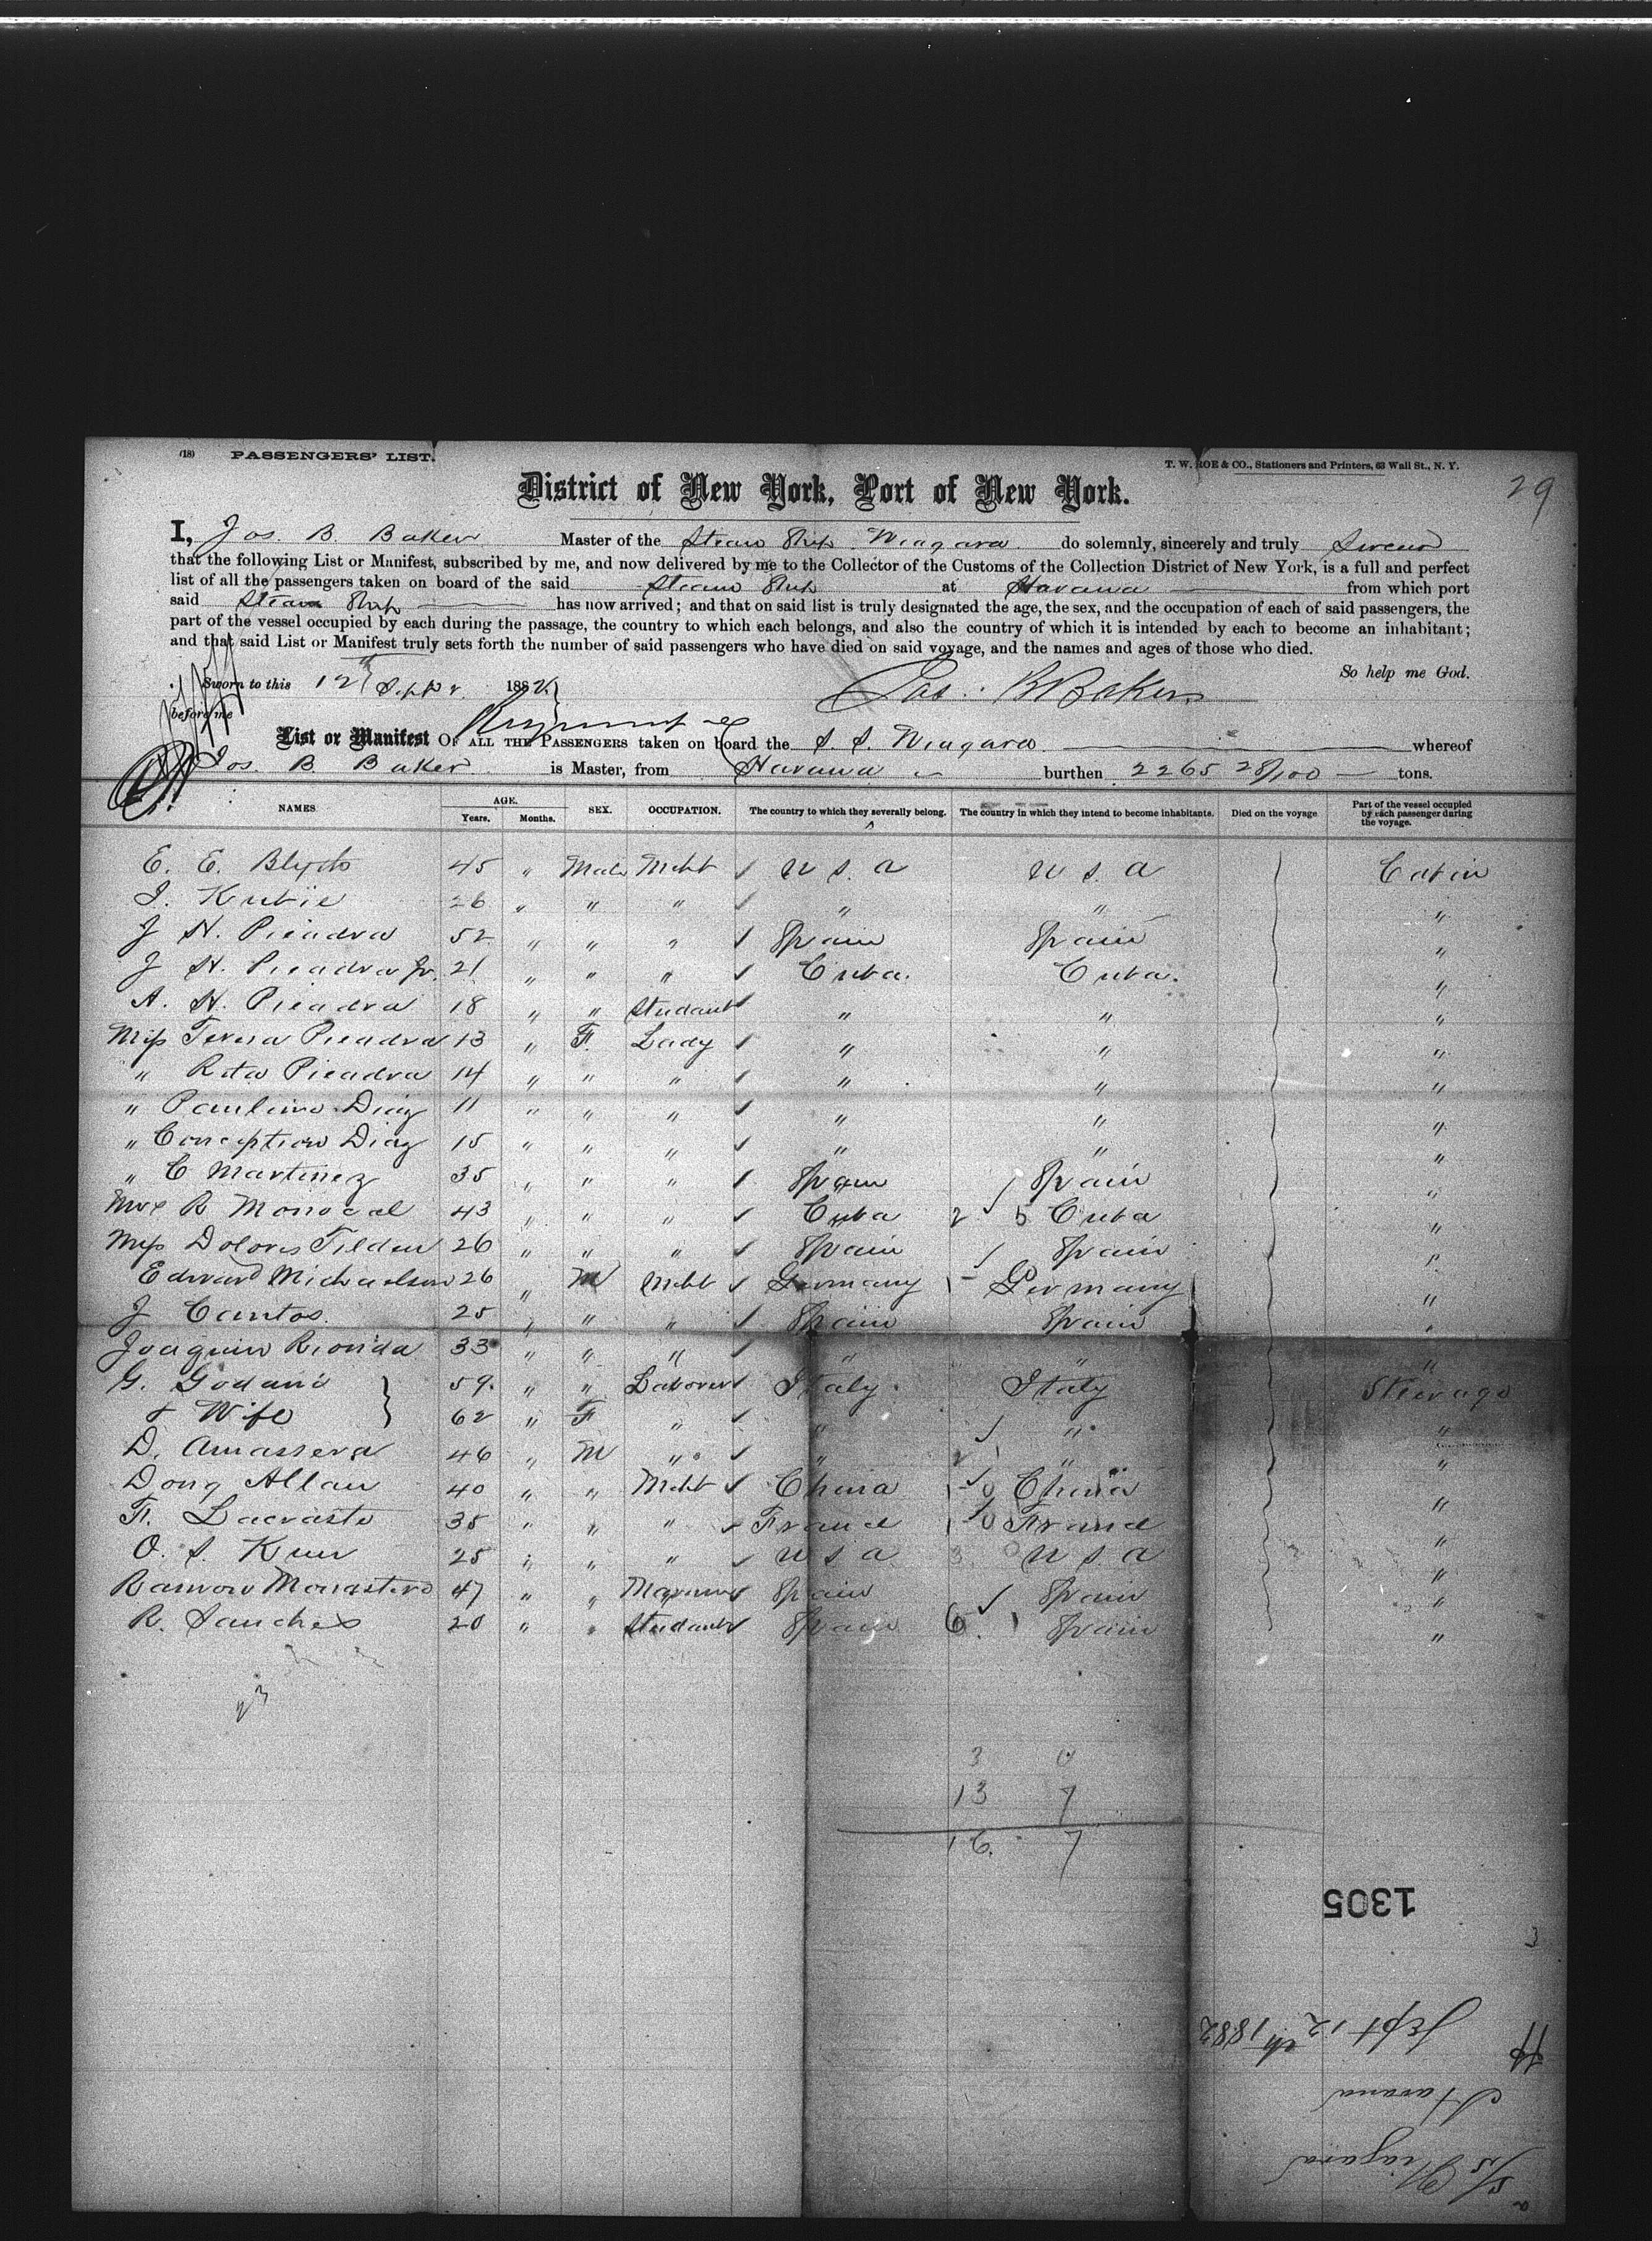 (18) PASSENGERS' LIST.
T. W. ROE & CO., Stationers and Printers, 63 Wall St., N. Y.
29
District of New York, Port of New York.
I, Jos. B. Baker Master of the Steam Ship Niagara do solemnly, sincerely and truly Swear
that the following List or Manifest, subscribed by me, and now delivered by me to the Collector of the Customs of the Collection District of New York, is a full and perfect
list of all the passengers taken on board of the said Steam Ship at Havana from which port
said Steam Ship has now arrived; and that on said list is truly designated the age, the sex, and the occupation of each of said passengers, the
part of the vessel occupied by each during the passage, the country to which each belongs, and also the country of which it is intended by each to become an inhabitant;
and that said List or Manifest truly sets forth the number of said passengers who have died on said voyage, and the names and ages of those who died.
So help me God.
Sworn to this 12th Septr. 1882
Jas. B Baker
before me
List or Manifest OF ALL THE PASSENGERS taken on board the S. S. Niagara whereof
Jos. B. Baker is Master, from Havana burthen 2265 28/100 tons.
NAMES. AGE. Years. Months. SEX. OCCUPATION. The country to which they severally belong. The country in which they intend to become inhabitants. Died on the voyage Part of the vessel occupied by each passenger during the voyage.
E. E. 45 " Male Mcht U S. A U S. A Cabin
26 " " " " " "
J H. Piedra 52 " " " Spain Spain "
J H. Piedra Jr. 21 " " " Cuba. Cuba. "
A. H. Piedra 18 " " Student " " "
Miss Piedra 13 " F. Lady " " "
" Rita Piedra 14 " " " " " "
" Paulina Diaz 11 " " " " " "
" Conception Diaz 15 " " " " " "
" C Martinez 35 " " " Spain Spain "
Mrs R Monocal 43 " " " Cuba 2 5 Cuba "
Miss Dolores Tilden 26 " " " Spain Spain "
Edward Michaelson 26 " M Mcht Germany 1 Germany "
J Cantos. 25 " " " Spain Spain "
Joaquin Rionda 33 " " " " " "
G. Godani 59. " " Laborer Italy Italy Steerage
& Wife 62 " F " " " "
D. Amassera 46 " M " " " "
Dong Allan 40 " " Mcht China China "
F. Lacaste 35 " " " France France "
O. S. 25 " " " U S A 3 0 U S A "
Ramon Monastero 47 " " Spain Spain "
R. Sanchez 20 " " Student Spain 6 1 Spain "
23
3 0
13 7
16. 7
1305
3
Sept 12th 1882
Havana
S/S Niagara